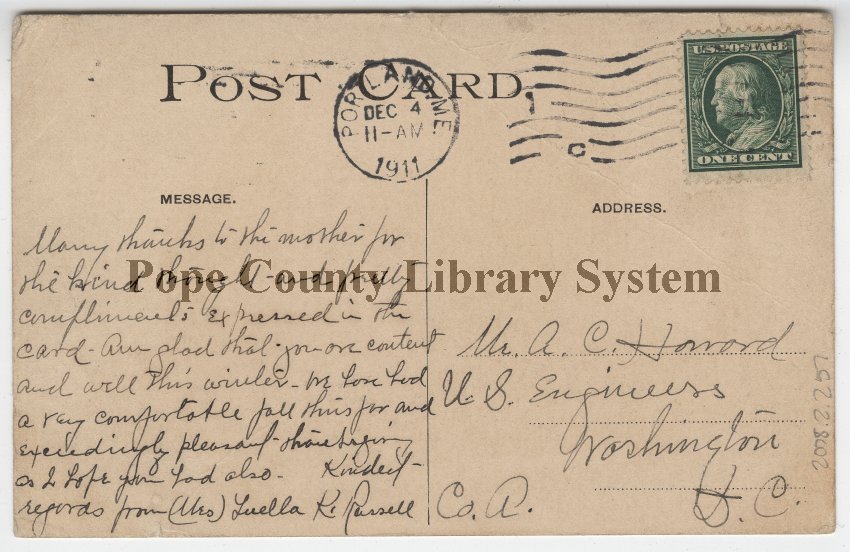 POST CARD.
PORTLAND, ME.
DEC 4
11-AM
1911
1
C
U.S. POSTAGE
ONE CENT
MESSAGE.
Many thanks to the mother for
the kind thought and pretty
compliments expressed in the
card - Am glad that you are content
and well this winter - We have had
a very comfortable fall thus far and
exceedingly pleasant thanksgiving
as I hope you had also - Kindest
regards from (Mrs) Luella K. Russell
ADDRESS.
Mr. A. C. Howard
U. S. Engineers
Washington
Co. A. D. C.
Pope County Library System